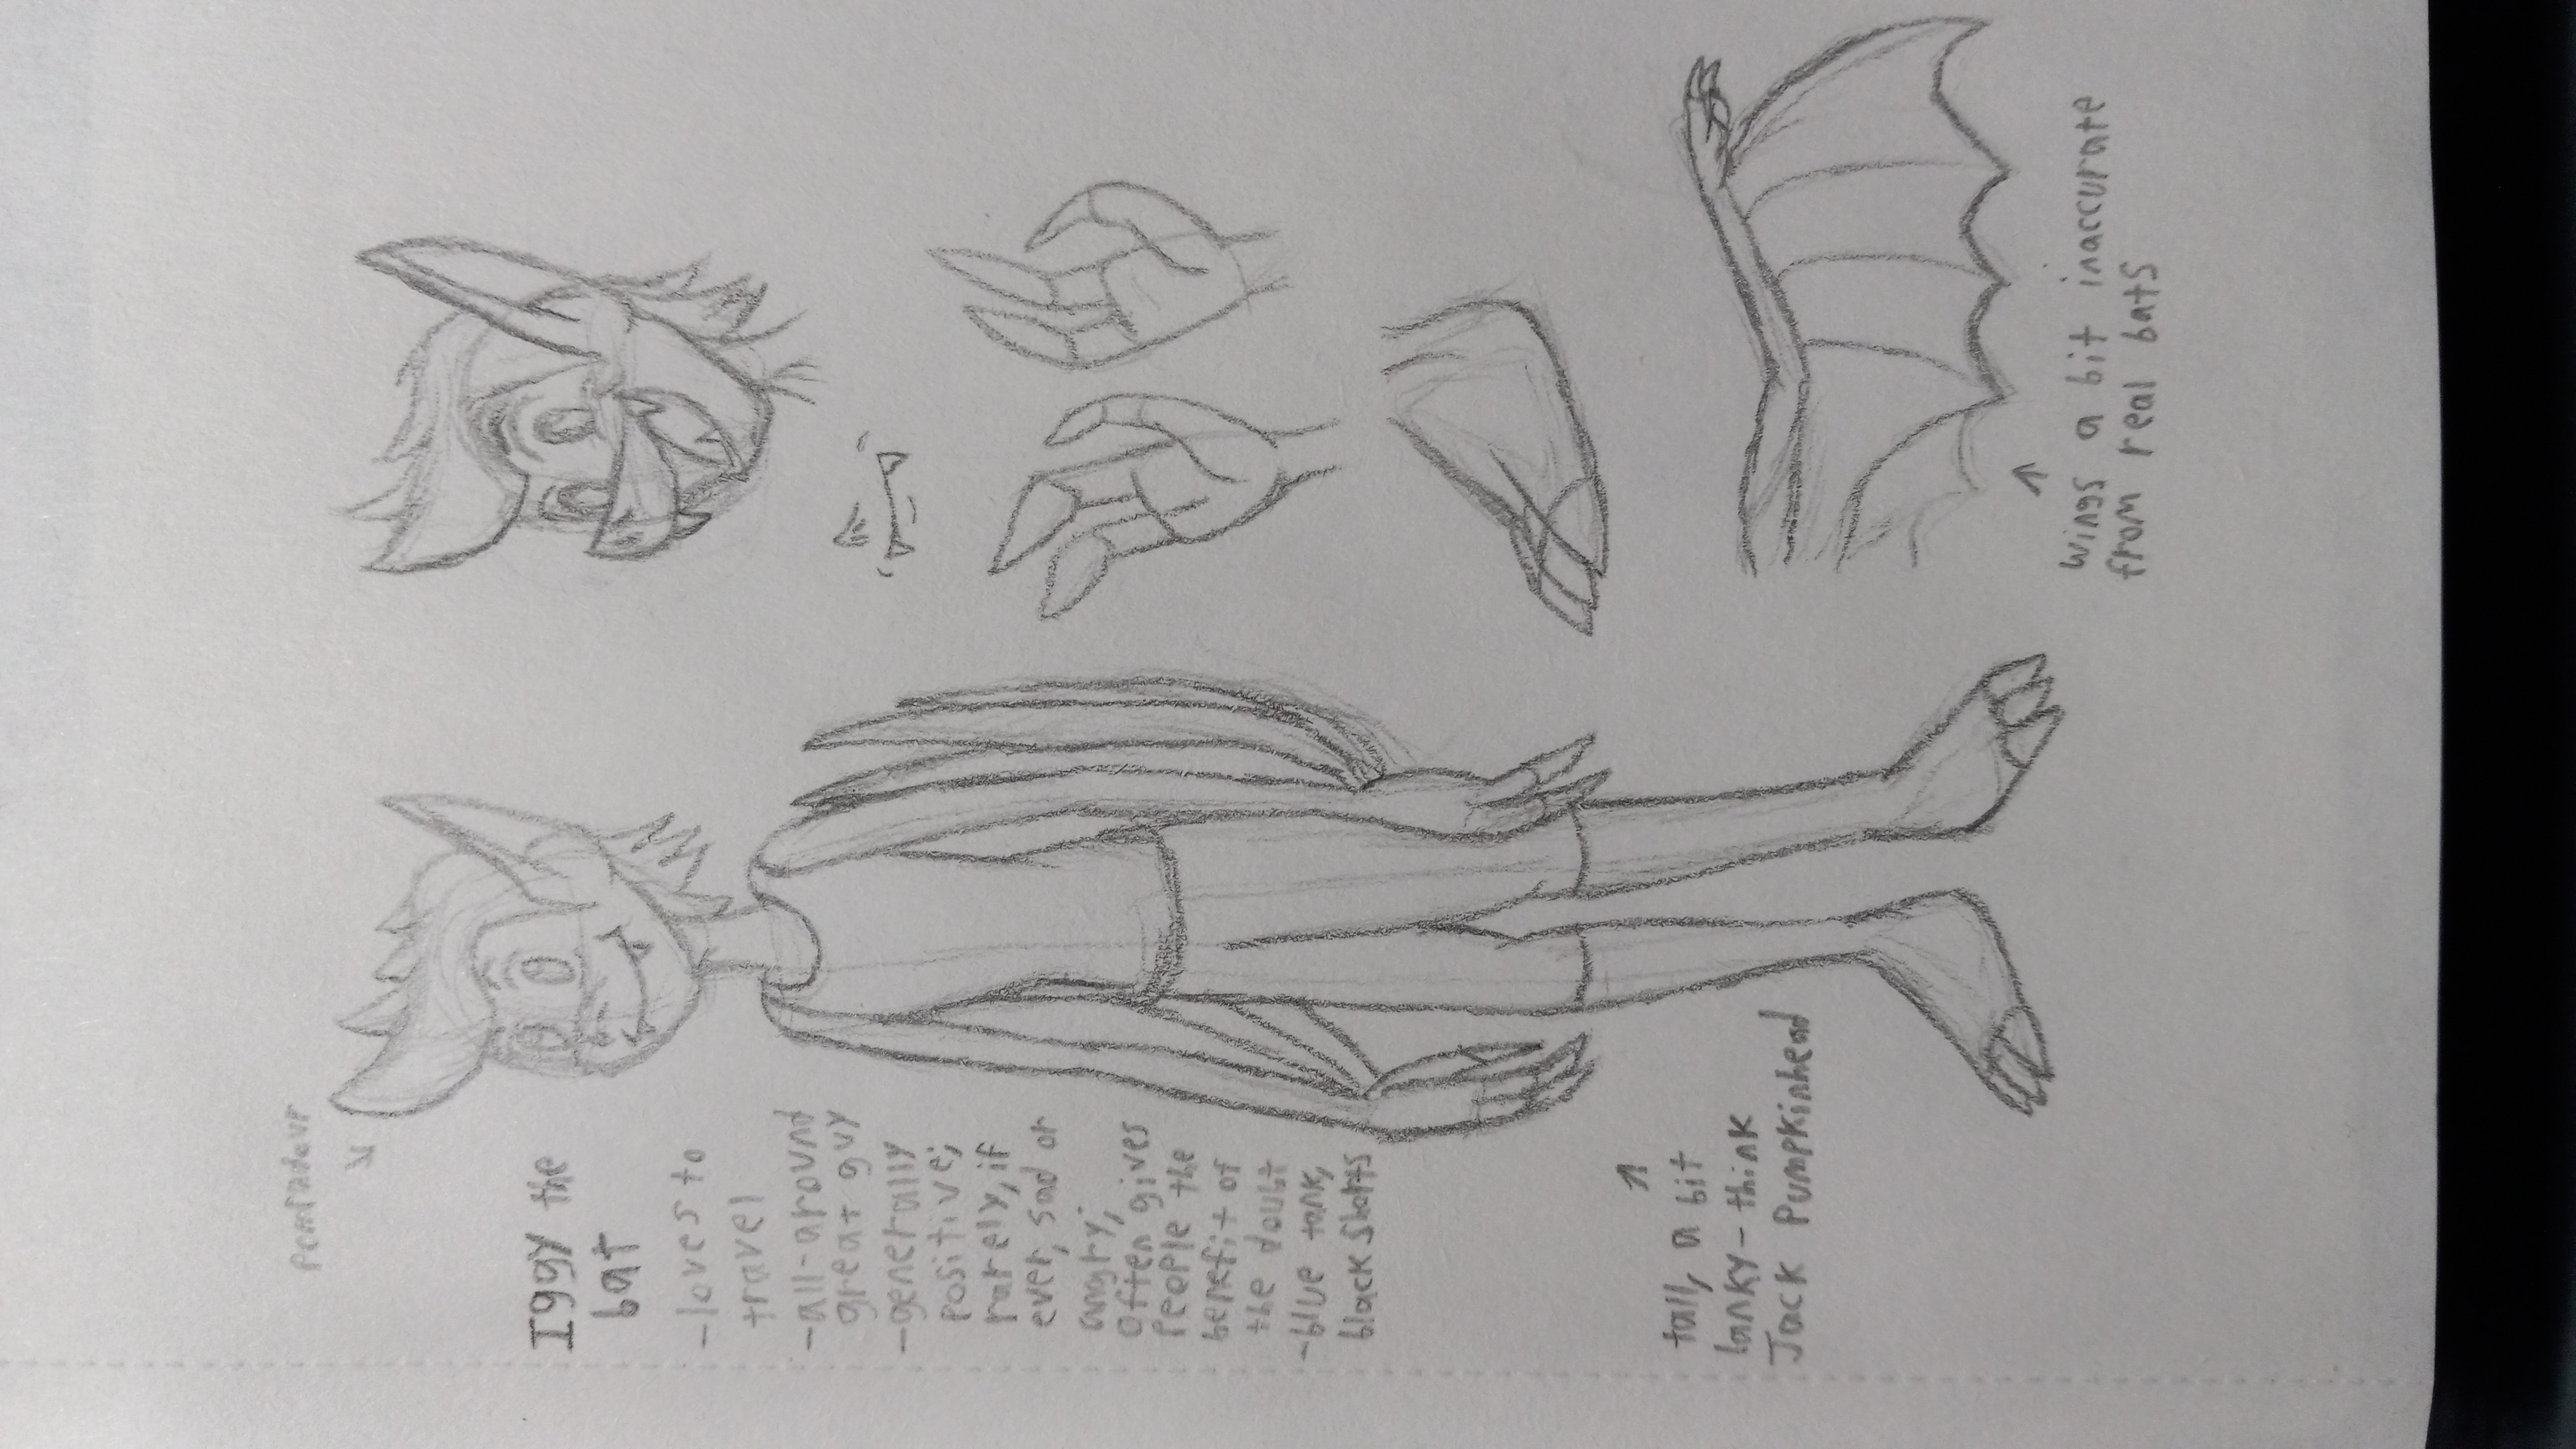 pompadour
Iggy the
bat
-loves to
travel
-all-around
great guy
-generally
positive;
rarely, if
ever, sad or
angry;
often gives
people the
benefit of
the doubt
-blue tank,
black shorts
tall, a bit
lanky-think
Jack Pumpkinhead
wings a bit inaccurate
from real bats